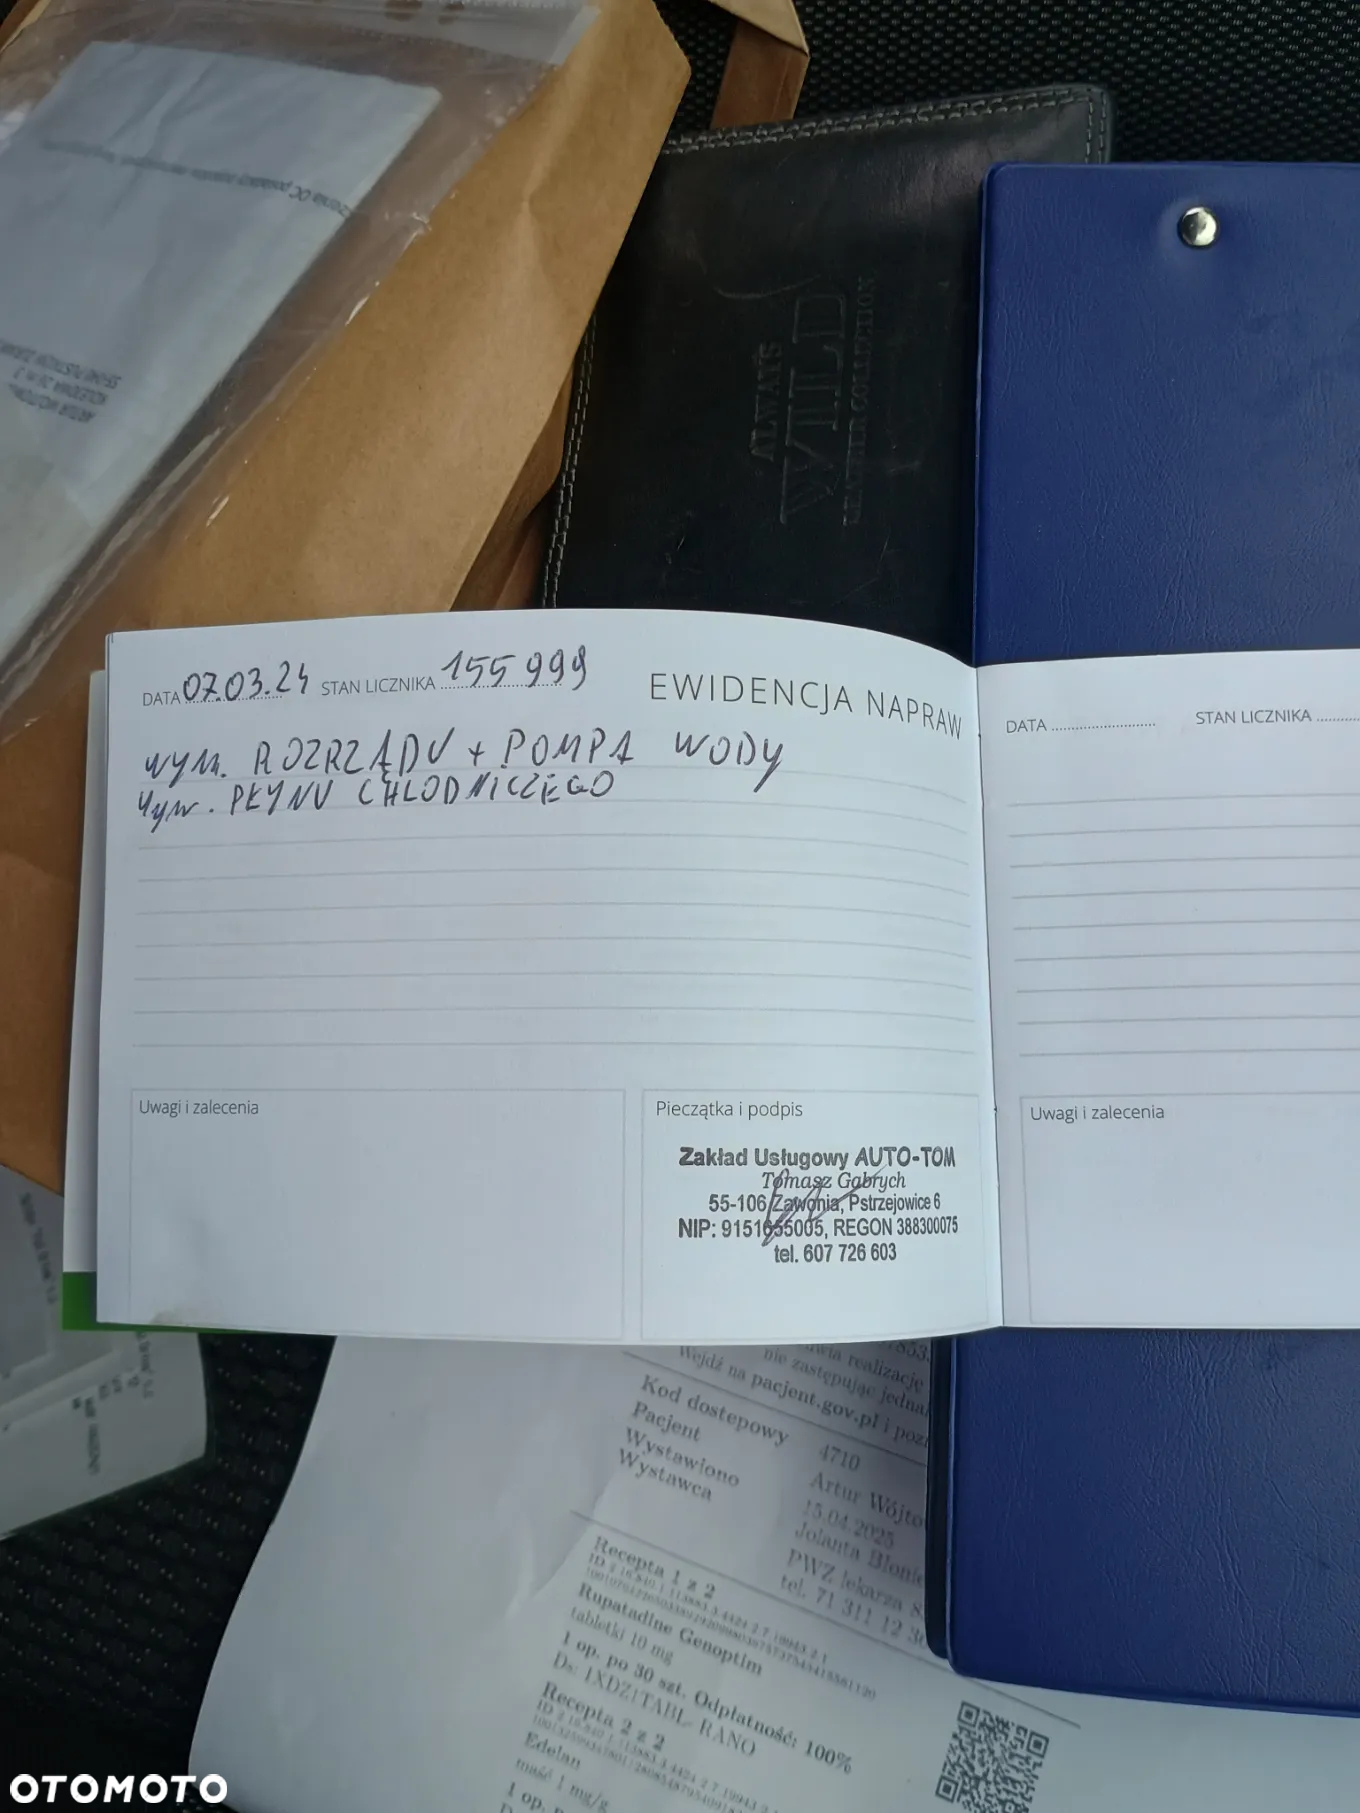 ALWAYS
WILD
LEATHER COLLECTION
DATA 07.03.24 STAN LICZNIKA 155 999
EWIDENCJA NAPRAW
wym. ROZRZĄDU + POMPA WODY
wym. PŁYNU CHŁODNICZEGO
Uwagi i zalecenia
Pieczątka i podpis
Zakład Usługowy AUTO-TOM
Tomasz Gabrych
55-106 Zawonia, Pstrzejowice 6
NIP: 9151655005, REGON 388300075
tel. 607 726 603
DATA STAN LICZNIKA
Uwagi i zalecenia
realizację
nie zastępując
Wejdź na pacjent.gov.pl i
Kod dostępowy 4710
Pacjent Artur
Wystawiono 15.04.2025
Wystawca Jolanta
PWZ lekarza
tel. 71 311 12
Recepta 1 z 2
Rupatadine Genoptim
tabletki 10 mg
1 op. po 30 szt. Odpłatność: 100%
Ds: 1XDZ1TABL- RANO
Recepta 2 z 2
Edelan
maść 1 mg/g
1 op.
OTOMOTO